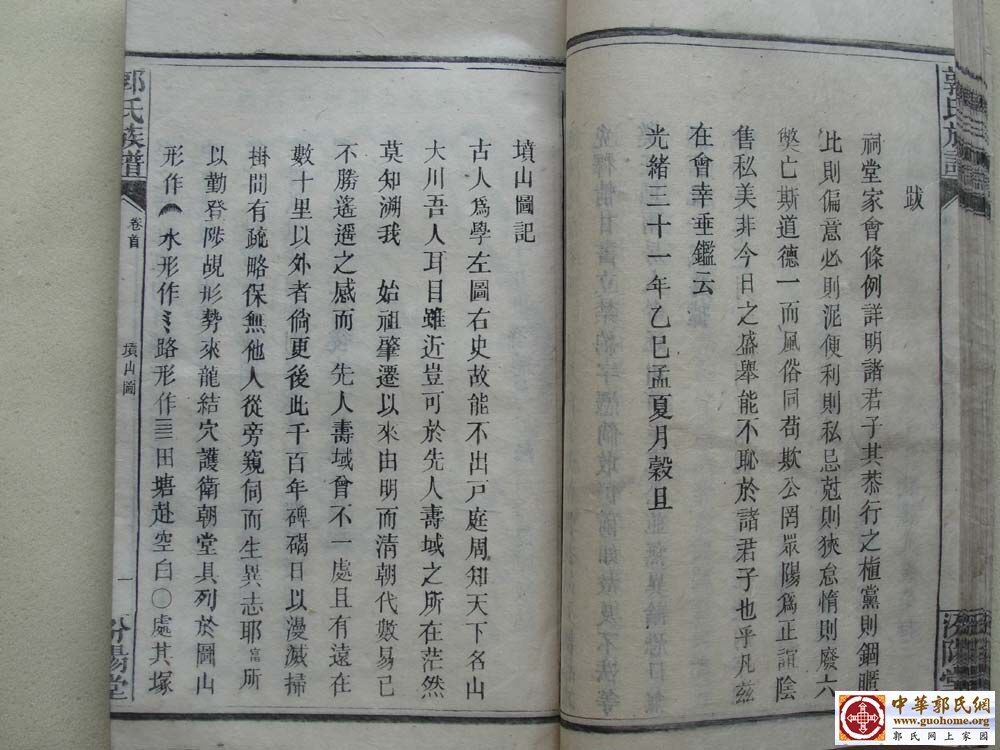 郭氏族譜
跋
祠堂家會條例詳明諸君子其恭行之植黨則錮
此則偏意必則泥便利則私忌尅則狹怠惰則廢六
獘亡斯道德一而風俗同苟欺公罔眾陽為正誼陰
售私美非今日之盛舉能不恥於諸君子也乎凡茲
在會幸垂鑑云
光緒三十一年乙巳孟夏月穀旦
汾陽堂
墳山圖記
古人為學左圖右史故能不出戸庭周知天下名山
大川吾人耳目雖近豈可於先人壽域之所在茫然
莫知溯我 始祖肇遷以來由明而清朝代數易已
不勝遙遥之感而 先人壽域曾不一處且有遠在
數十里以外者倘更後此千百年碑碣日以漫滅掃
掛間有疏略保無他人從旁窺伺而生異志耶富所
以勤登陟覘形勢來龍結穴護衛朝堂具列於圖山
形作 水形作 路形作 田塘赴空白〇處其塚
郭氏族譜
卷首
墳山圖
一
汾陽堂
中華郭氏網
www.guohome.org
郭氏网上家园